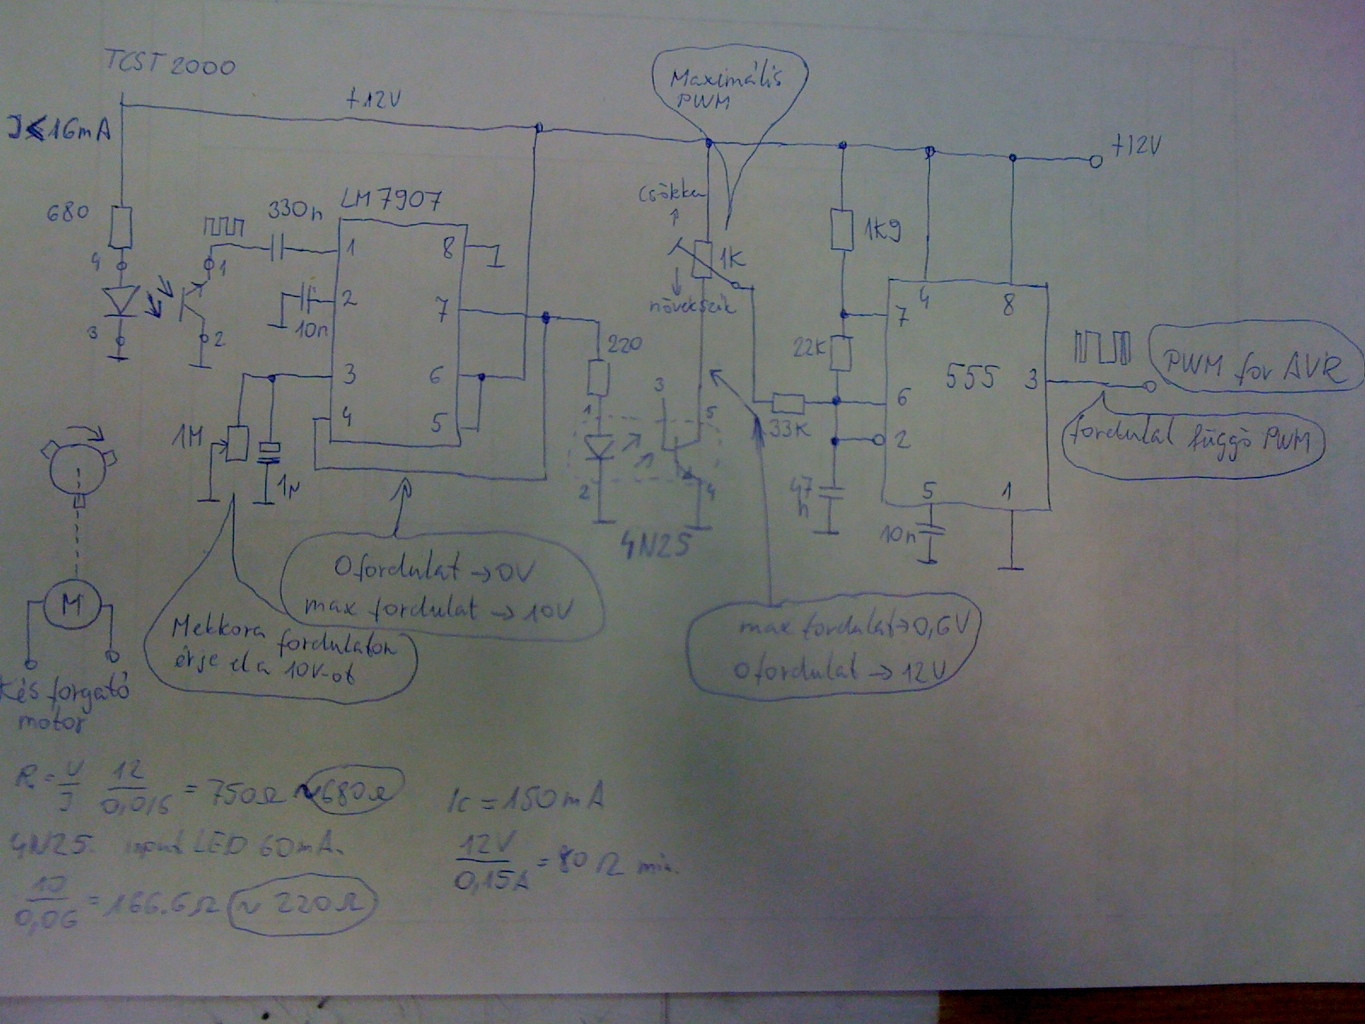 TCST 2000
I<16mA
+12V
+12V
Maximális
PWM
680
4
3
1
2
330n
10n
LM7907
1
2
3
4
8
7
6
5
1M
1µ
csökken
1K
növekszik
220
1
2
3
5
4
4N25
1K9
22K
33K
47
n
7
4
8
6
2
5
1
3
555
10n
PWM for AVR
fordulat függő PWM
0 fordulat → 0V
max fordulat → 10V
Mekkora fordulaton
érje el a 10V-ot
max fordulat → 0,6V
0 fordulat → 12V
M
Kés forgató
motor
R = U/I 12/0,016 = 750Ω ~680Ω
4N25. input LED 60mA.
10/0,06 = 166.6Ω ~ 220Ω
Ic = 150mA
12V/0,15A = 80Ω min.